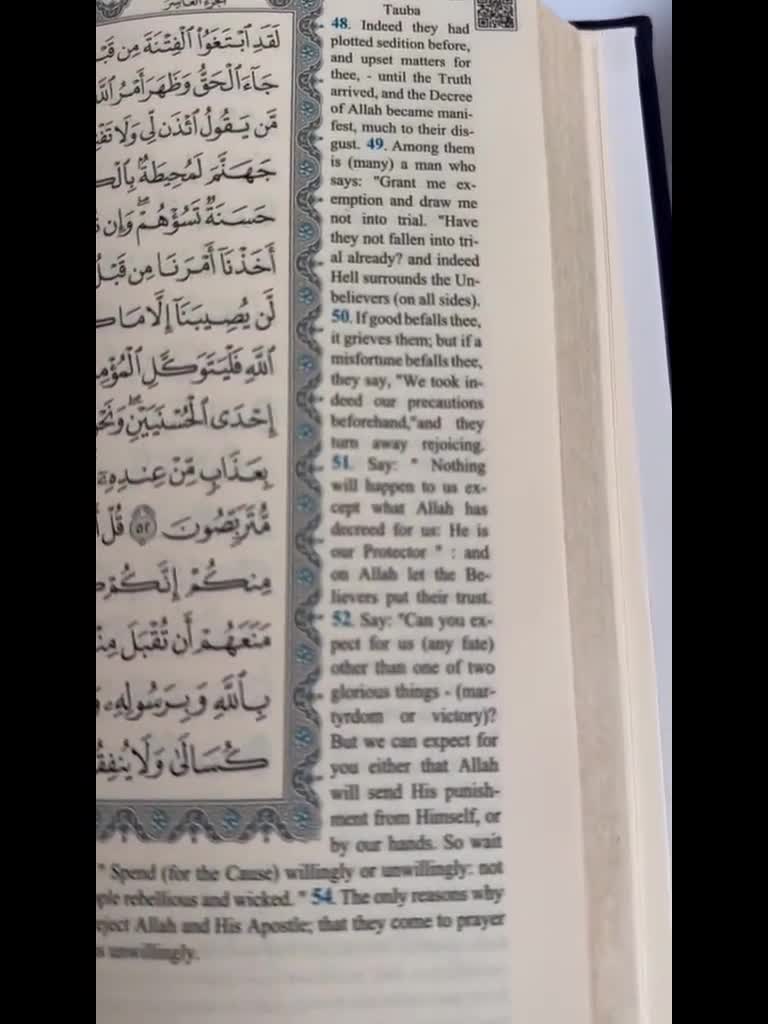 الجزء العاشر
Tauba
لَقَدِ ٱبْتَغَوُا۟ ٱلْفِتْنَةَ مِن
جَآءَ ٱلْحَقُّ وَظَهَرَ أَمْرُ
مَّن يَقُولُ ٱئْذَن لِّى وَلَا
جَهَنَّمَ لَمُحِيطَةٌۢ
حَسَنَةٌ تَسُؤْهُمْ ۖ وَإِن
أَخَذْنَآ أَمْرَنَا مِن
لَّن يُصِيبَنَآ إِلَّا مَا
ٱللَّهِ فَلْيَتَوَكَّلِ
إِحْدَى ٱلْحُسْنَيَيْنِ ۖ
بِعَذَابٍ مِّنْ عِندِهِۦٓ
مُّتَرَبِّصُونَ ٥٢ قُلْ
مِنكُمْ إِنَّكُمْ
مَنَعَهُمْ أَن تُقْبَلَ
بِٱللَّهِ وَبِرَسُولِهِۦ
كُسَالَىٰ وَلَا
48. Indeed they had
plotted sedition before,
and upset matters for
thee, - until the Truth
arrived, and the Decree
of Allah became mani-
fest, much to their dis-
gust. 49. Among them
is (many) a man who
says: "Grant me ex-
emption and draw me
not into trial. "Have
they not fallen into tri-
al already? and indeed
Hell surrounds the Un-
believers (on all sides).
50. If good befalls thee,
it grieves them; but if a
misfortune befalls thee,
they say, "We took in-
deed our precautions
beforehand,"and they
turn away rejoicing.
51. Say: " Nothing
will happen to us ex-
cept what Allah has
decreed for us: He is
our Protector " : and
on Allah let the Be-
lievers put their trust.
52. Say: "Can you ex-
pect for us (any fate)
other than one of two
glorious things - (mar-
tyrdom or victory)?
But we can expect for
you either that Allah
will send His punish-
ment from Himself, or
by our hands. So wait
" Spend (for the Cause) willingly or unwillingly: not
rebellious and wicked. " 54. The only reasons why
Allah and His Apostle; that they come to prayer
unwillingly.